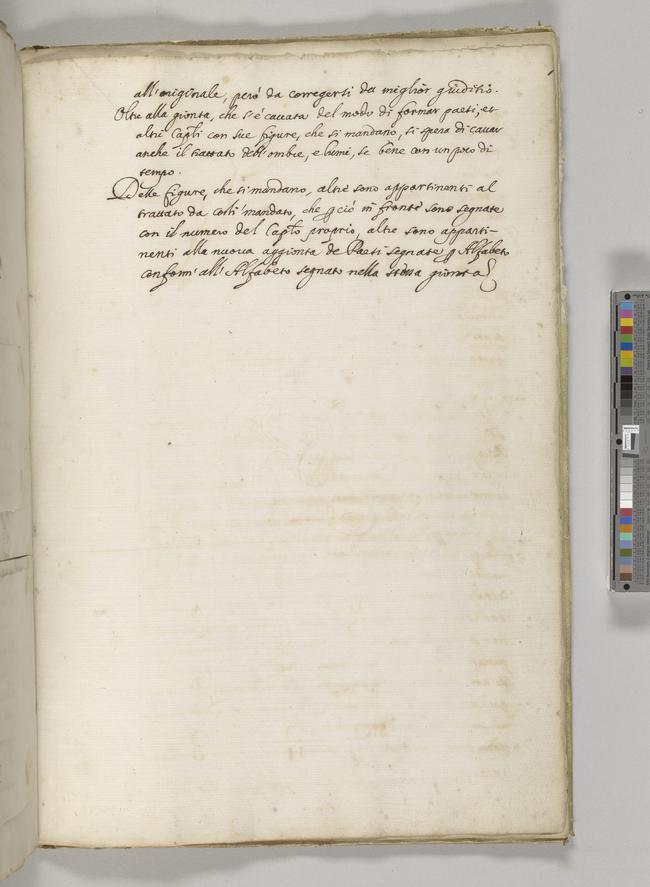 all'originale, però da corregerti da miglior giuditio.
Oltre alla gionta, che s'è cavata del modo di formar paesi, et
altri Cap.li con sue figure, che si mandano, si spera di cavar
anche il trattato dell'ombre, e lumi, se bene con un poco di
tempo.
Delle figure, che si mandano, altre sono appartinenti al
trattato da costì mandato, che p ciò in fronte sono segnate
con il numero del Cap.lo proprio, altre sono apparti-
nenti alla nuova aggionta de Paesi segnate p Alfabeto
conform' all'Alfabeto segnato nella stessa gionta